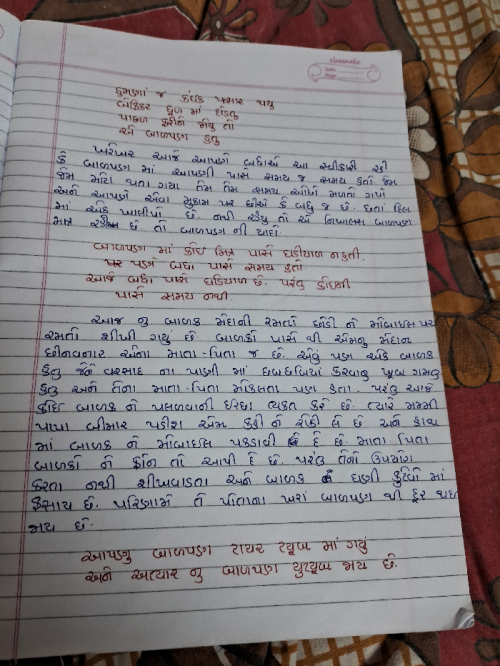 classmate
Date
Page
હમણાં જ કંઈક પસાર થયુ
બેફિકર ધૂળ માં દોડતુ
પાછળ ફરીને જોયુ તો
એ બાળપણ હતુ
ખરેખર આજે આપણે બધાએ આ સ્વીકારી
કે બાળપણ માં આપણી પાસે સમય જ સમય હતો જેમ
જેમ મોટા થતા ગયા તેમ તેમ સમય ઓછો મળતો ગયો
અને આપણે એવા મુકામ પર છીએ કે બધુ જ છે. છતાં દિલ
માં એક ખાલીપો છે. નથી રહ્યુ તો એ નિખાલસ બાળપણ
માત્ર રહીસ છે. તો બાળપણ ની યાદો.
બાળપણ માં કોઈ મિત્ર પાસે ઘડીયાળ નહતી.
પર પણ બધા પાસે સમય હતો
આજે બધા પાસે ઘડિયાળ છે. પરંતુ કોઈની
પાસે સમય નથી
આજ નુ બાળક મેદાની રમતો છોડી ને મોબાઈલ પર
રમતો શીખી ગયુ છે. બાળકો પાસે થી એમનુ મેદાન
છીનવનાર એના માતા-પિતા જ છે. એવુ પણ એક બાળક
હતુ જેને વરસાદ ના પાણી માં છબછબિયાં કરવાનુ ખૂબ ગમતુ
હતુ અને તેના માતા-પિતા મોકલતા પણ હતા. પરંતુ આજે
કોઈ બાળક ને પલળવાની ઈચ્છા વ્યક્ત કરે છે. ત્યારે મમ્મી
પાપા બીમાર પડીશ એમ કહી ને રોકી લે છે અને હાથ
માં બાળક ને મોબાઈલ પકડાવી દે છે. માતા પિતા
બાળકો ને ફોન તો આપી દે છે. પરંતુ તેનો ઉપયોગ
કરતા નથી શીખવાડતા અને બાળક ઘણી કુટેવો માં
ફસાય છે. પરિણામે તે પોતાના ખરાં બાળપણ થી દૂર થઇ
જાય છે.
આપણુ બાળપણ ટાયર ટ્યૂબ માં ગયું
અને અત્યાર નુ બાળપણ યુટ્યૂબ જાય છે.